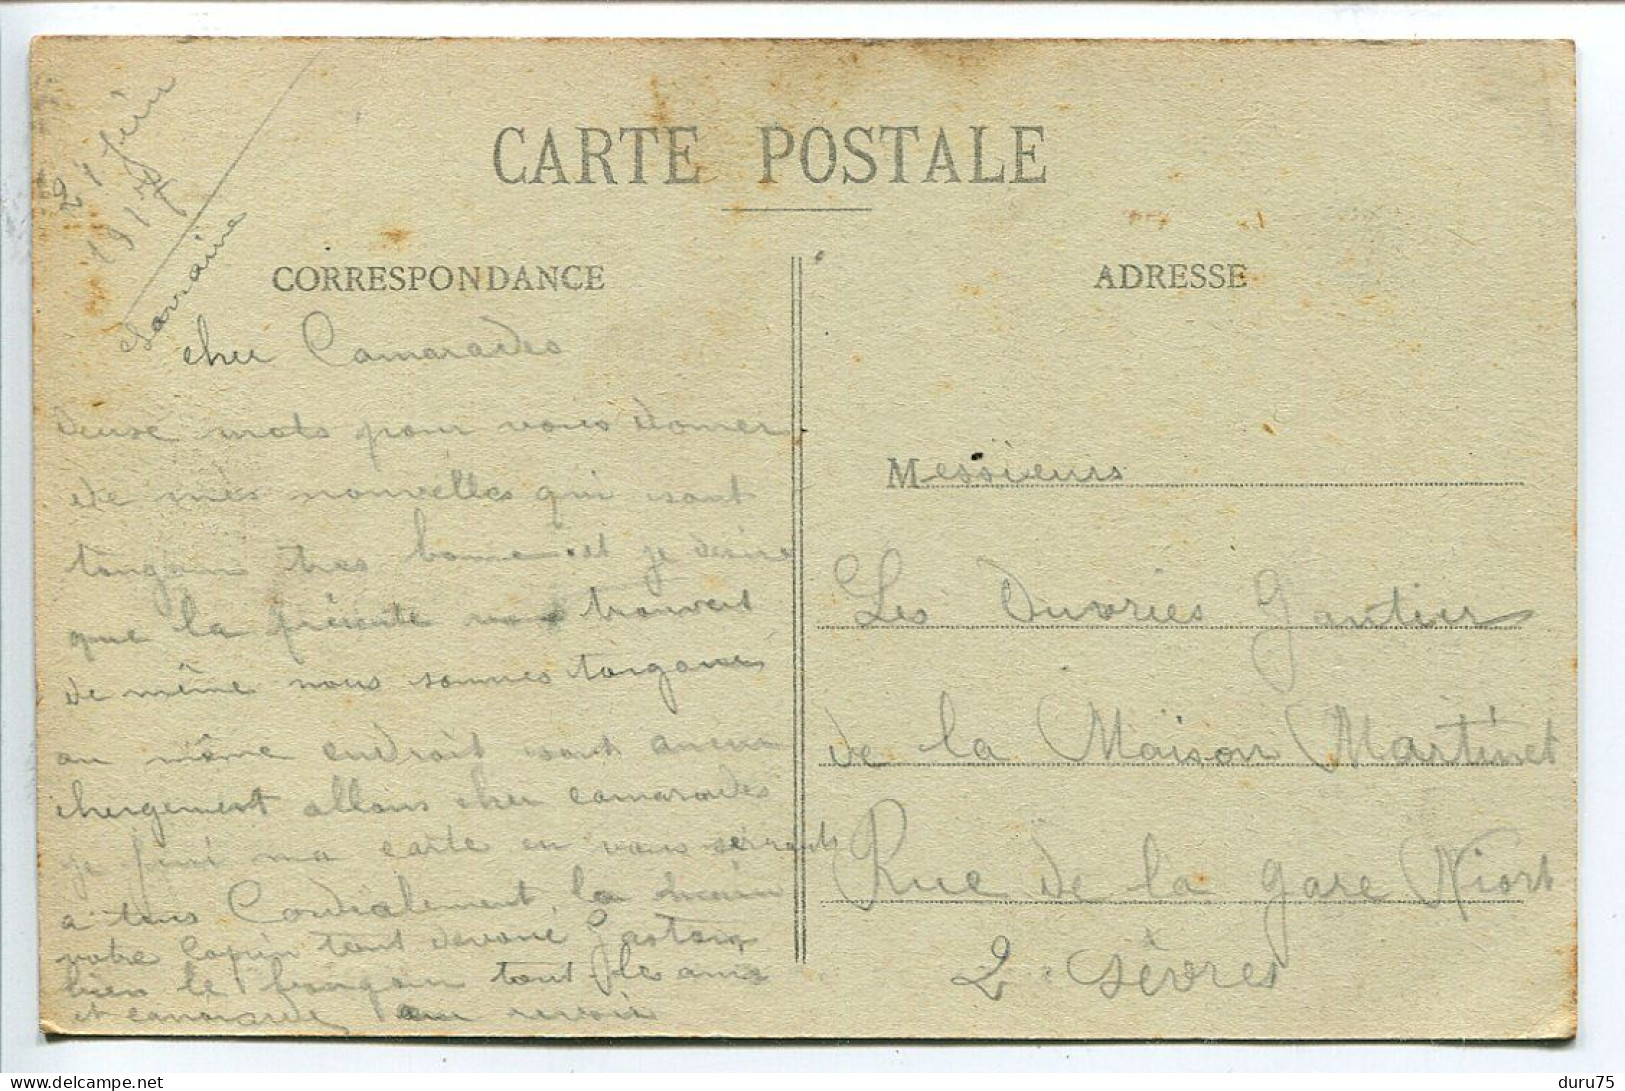 CARTE POSTALE
21 Juin
1917
Lorraine
CORRESPONDANCE
ADRESSE
cher Camarades
deuse mots pour vous donner
de mes nouvelles qui sont
tougour tres bonne et je desire
que la présente vous trouvest
de même nous sommes tougours
au même endroit sout aucun
chergement allons cher camarades
je fini ma carte en vous serrants
a tous Cordialement la main
votre copin tout devoué
bien le bongour tout les amis
et camarade au revoir
Messieurs
Les Ouvries Gantier
de la Maison Martinet
Rue de la gare Niort
2. Sèvres
duru75